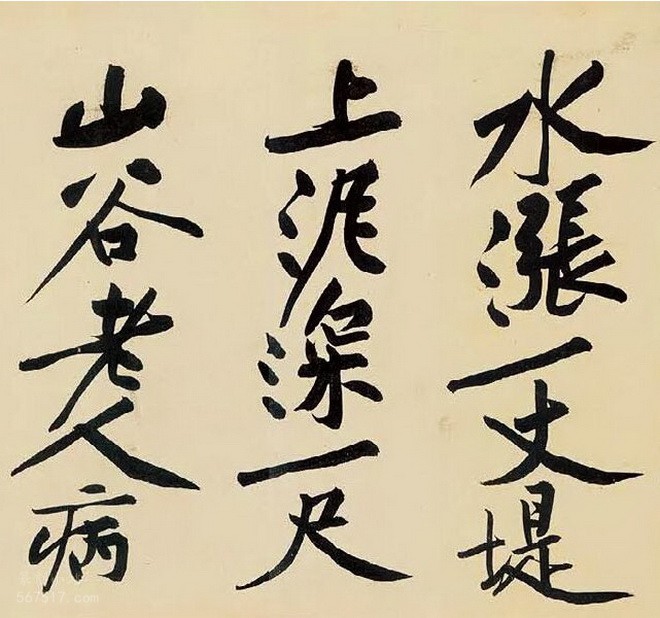 水漲一丈堤
上泥深一尺
山谷老人病
567517.com